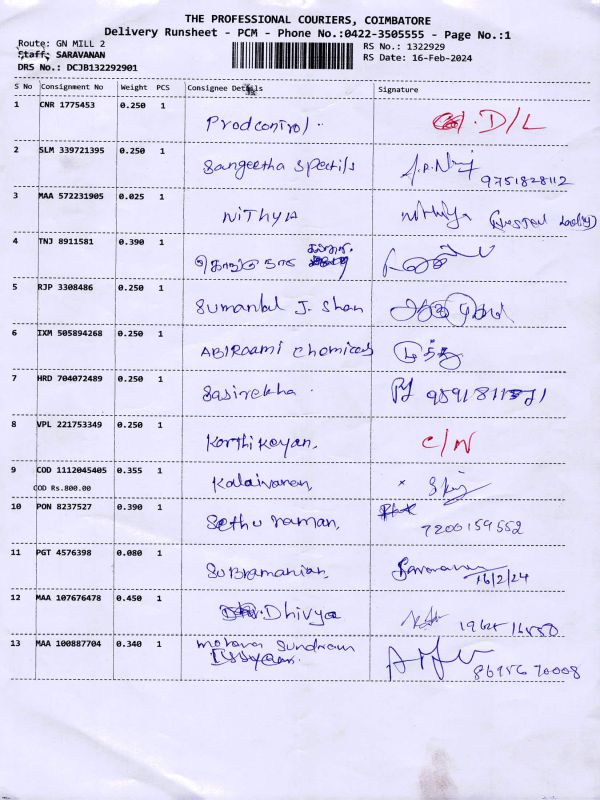 THE PROFESSIONAL COURIERS, COIMBATORE
Delivery Runsheet - PCM - Phone No.:0422-3505555 - Page No.:1
Route: GN MILL 2 RS No.: 1322929
Staff: SARAVANAN RS Date: 16-Feb-2024
DRS No.: DCJB132292901
S No Consignment No Weight PCS Consignee Details Signature
1 CNR 1775453 0.250 1 Prodcontrol . D/L
2 SLM 339721395 0.250 1 Sangeetha Spectils 9751828112
3 MAA 572231905 0.025 1 NiTHYA Nithiya
4 TNJ 8911581 0.390 1
5 RJP 3308486 0.250 1 Sumanlal J. Shan
6 IXM 505894268 0.250 1 ABIRaami chemicals
7 HRD 704072489 0.250 1 Sasirekha
8 VPL 221753349 0.250 1 Karthikeyan, C/N
9 COD 1112045405 0.355 1 Kalaivanan,
COD Rs.800.00
10 PON 8237527 0.390 1 Sethu raman, 7200159552
11 PGT 4576398 0.080 1 SuBramanian, Saravanan 16/2/24
12 MAA 107676478 0.450 1 Dhivya
13 MAA 100887704 0.340 1 Sundram